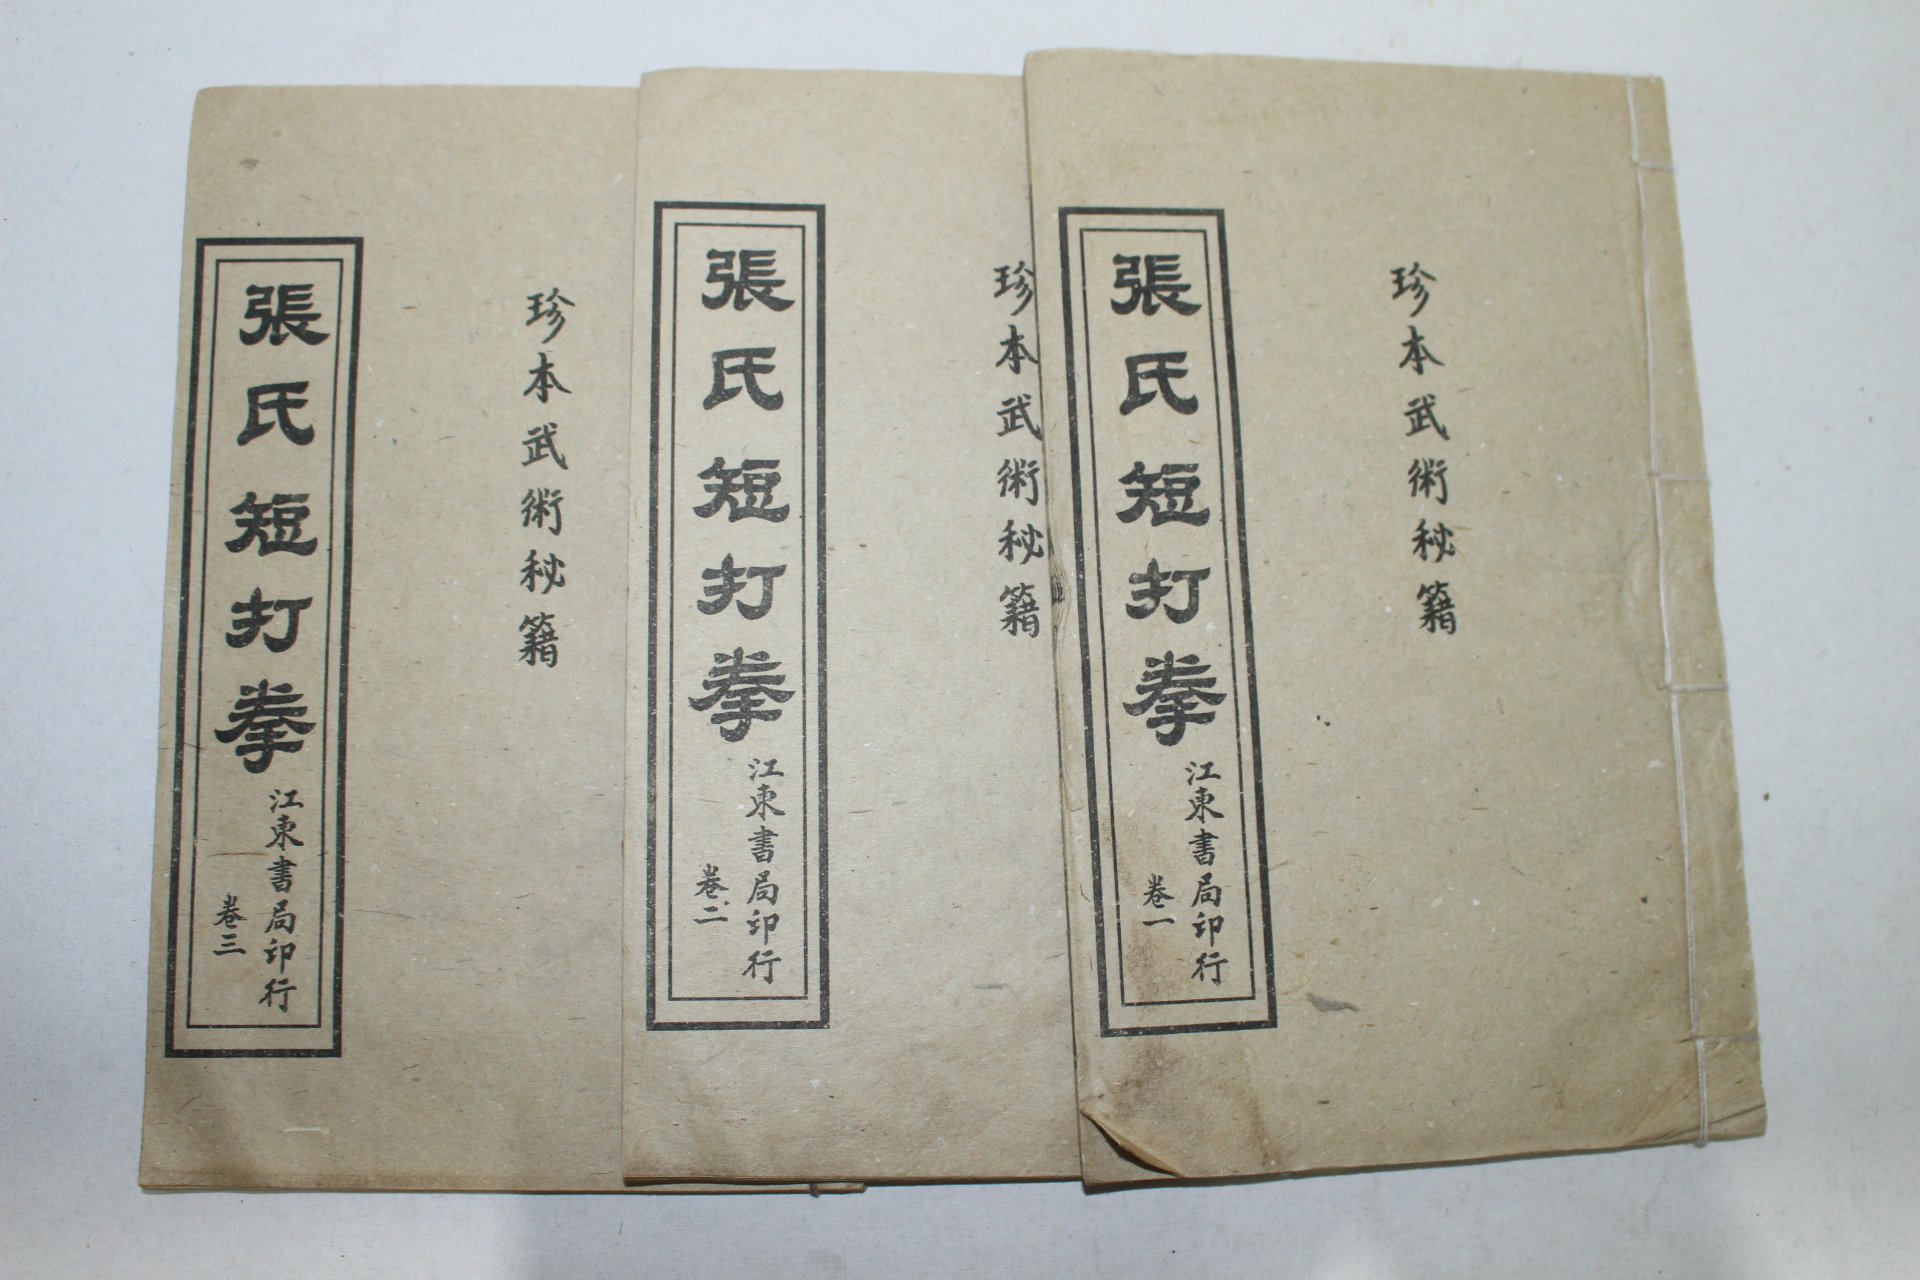 珍本武術秘籍
張氏短打拳
江東書局印行
卷一
珍本武術秘籍
張氏短打拳
江東書局印行
卷二
珍本武術秘籍
張氏短打拳
江東書局印行
卷三